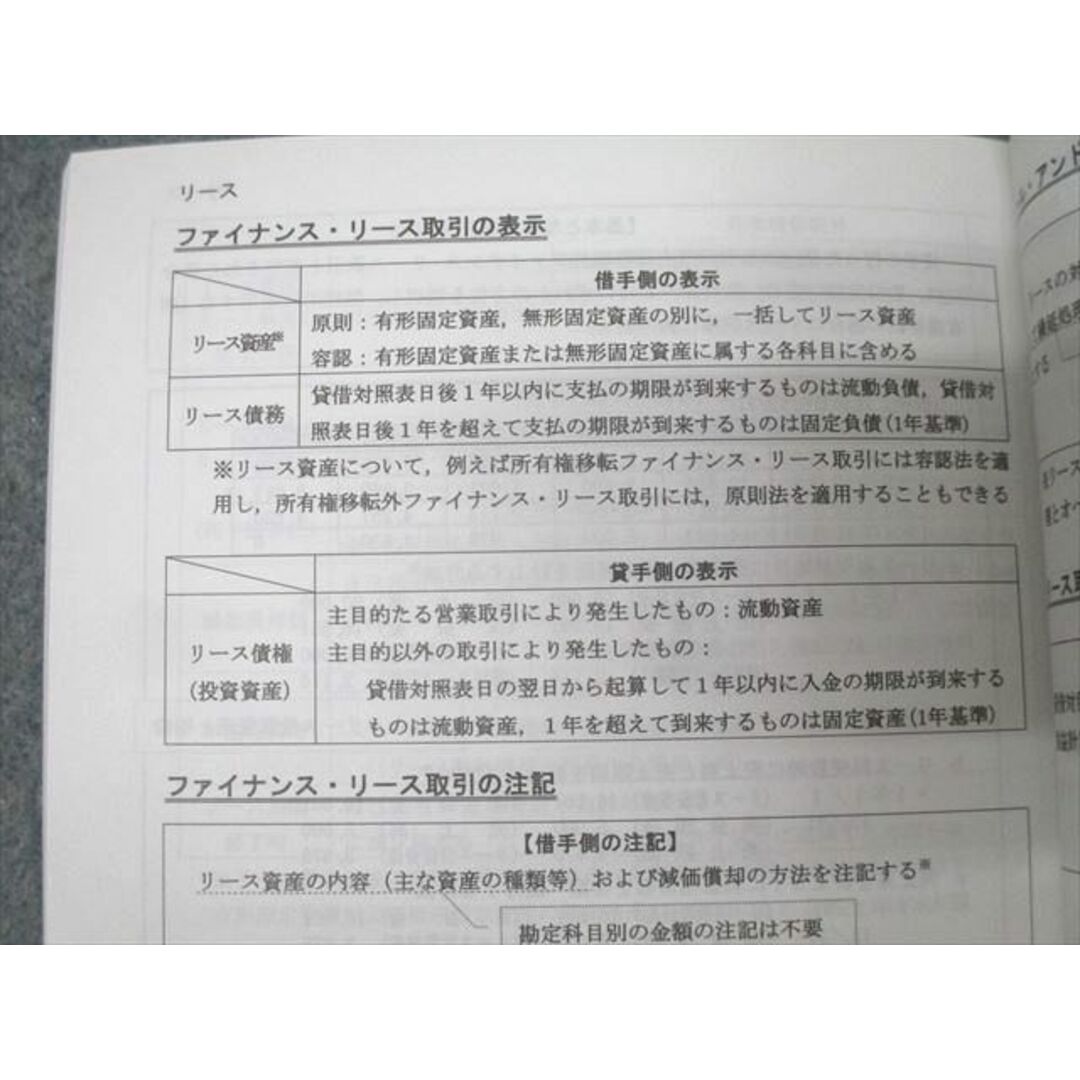 リース
ファイナンス・リース取引の表示
借手側の表示
リース資産※
原則：有形固定資産，無形固定資産の別に，一括してリース資産
容認：有形固定資産または無形固定資産に属する各科目に含める
リース債務
貸借対照表日後１年以内に支払の期限が到来するものは流動負債，貸借対
照表日後１年を超えて支払の期限が到来するものは固定負債(1年基準)
※リース資産について，例えば所有権移転ファイナンス・リース取引には容認法を適
用し，所有権移転外ファイナンス・リース取引には，原則法を適用することもできる
貸手側の表示
リース債権
(投資資産)
主目的たる営業取引により発生したもの：流動資産
主目的以外の取引により発生したもの：
貸借対照表日の翌日から起算して１年以内に入金の期限が到来する
ものは流動資産，１年を超えて到来するものは固定資産(1年基準)
ファイナンス・リース取引の注記
【借手側の注記】
リース資産の内容（主な資産の種類等）および減価償却の方法を注記する※
勘定科目別の金額の注記は不要